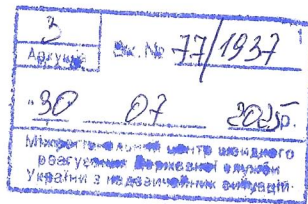 3
Аркушів
Вх. № 77/1937
"30 07 2025р.
Міжрегіональний центр швидкого
реагування Державної служби
України з надзвичайних ситуацій